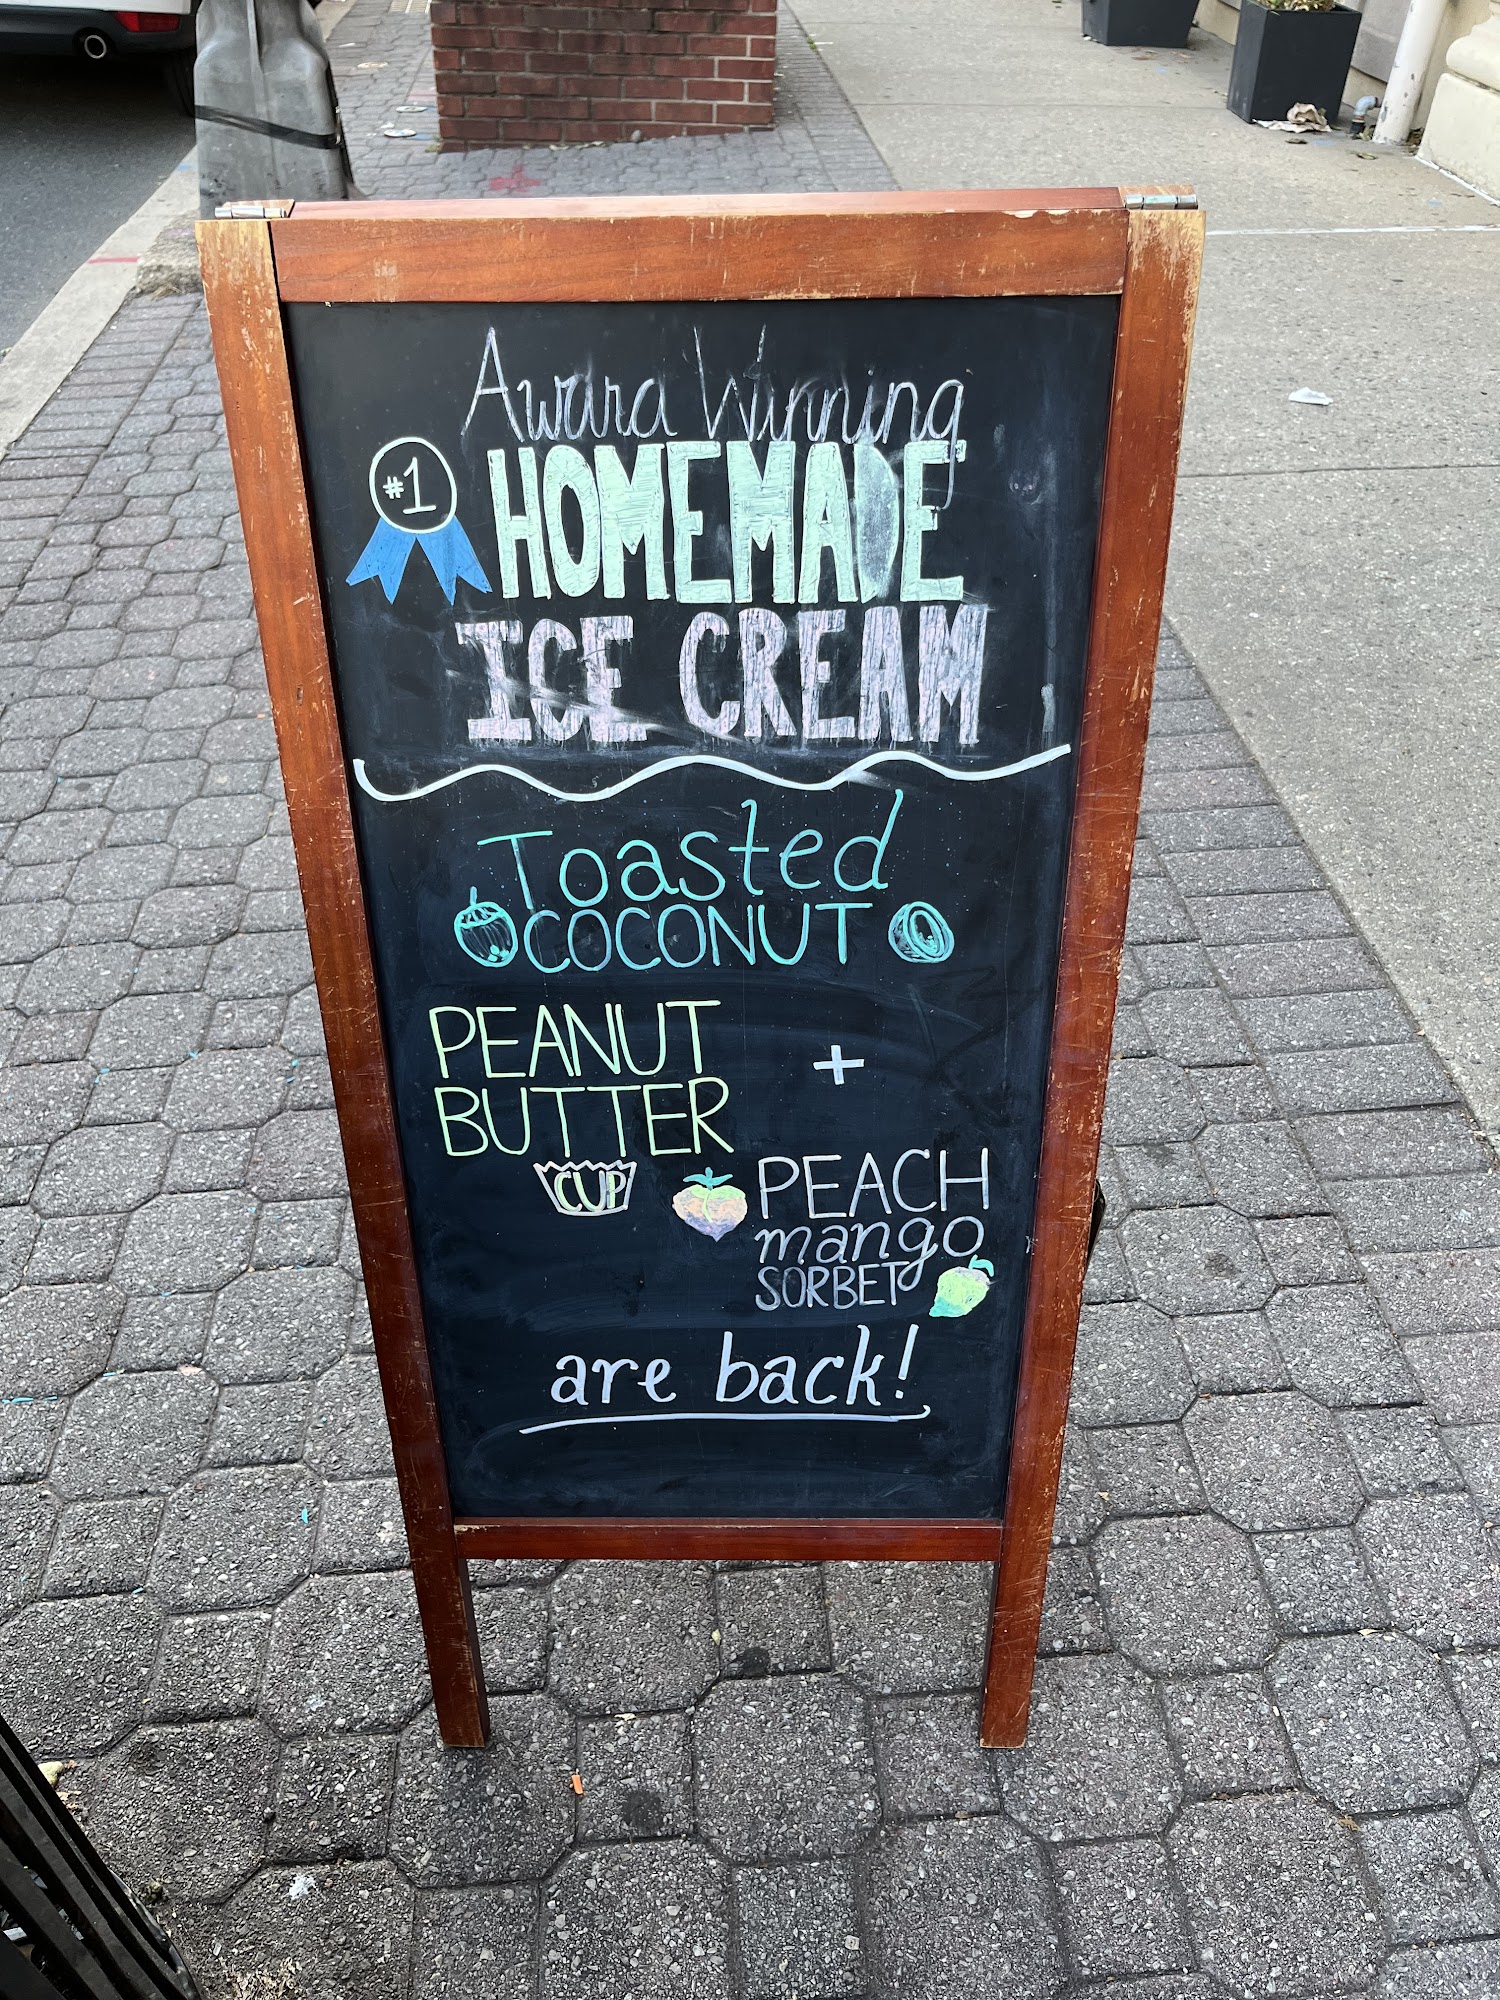 Award Winning
#1
HOMEMADE
ICE CREAM
Toasted
COCONUT
PEANUT
BUTTER
CUP
+
PEACH
mango
SORBET
are back!